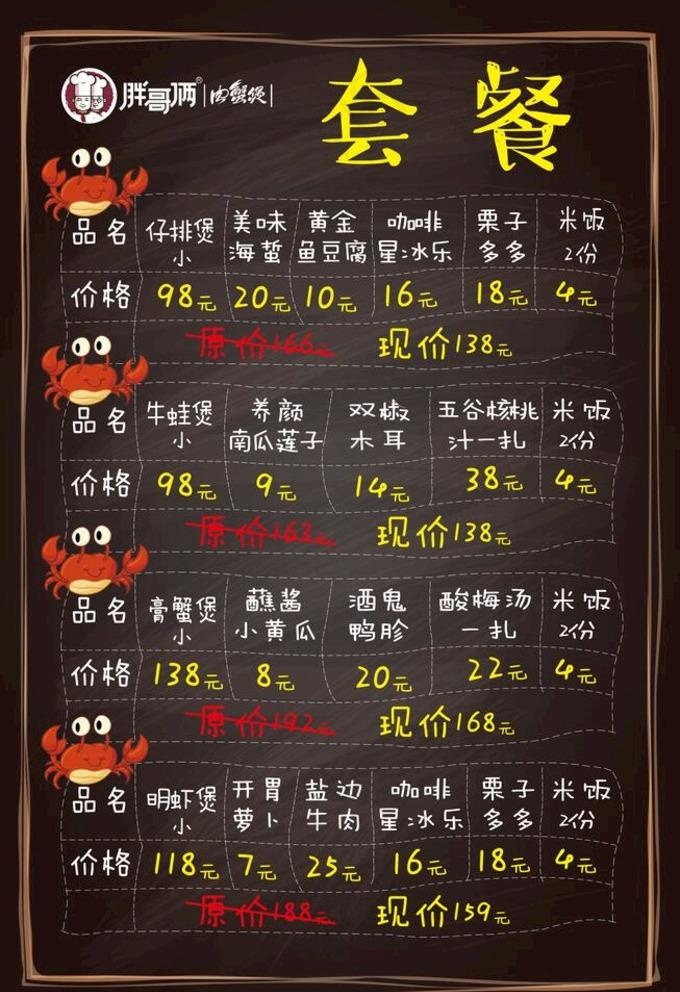 胖哥俩® 肉蟹煲
套餐
品名 仔排煲小 美味海蜇 黄金鱼豆腐 咖啡星冰乐 栗子多多 米饭2份
价格 98元 20元 10元 16元 18元 4元
原价166元 现价138元
品名 牛蛙煲小 养颜南瓜莲子 双椒木耳 五谷核桃汁一扎 米饭2份
价格 98元 9元 14元 38元 4元
原价163元 现价138元
品名 膏蟹煲小 蘸酱小黄瓜 酒鬼鸭胗 酸梅汤一扎 米饭2份
价格 138元 8元 20元 22元 4元
原价192元 现价168元
品名 明虾煲小 开胃萝卜 盐边牛肉 咖啡星冰乐 栗子多多 米饭2份
价格 118元 7元 25元 16元 18元 4元
原价188元 现价159元